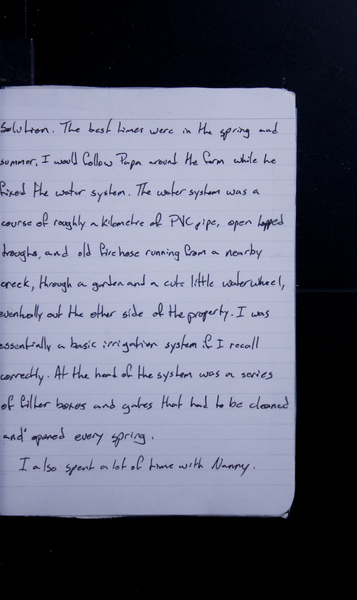 solution. The best times were in the spring and
summer, I would follow Papa around the farm while he
fixed the water system. The water system was a
course of roughly a kilometre of PVC pipe, open topped
troughs, and old firehose running from a nearby
creek, through a garden and a cute little waterwheel,
eventually out the other side of the property. I was
essentially a basic irrigation system if I recall
correctly. At the head of the system was a series
of filter boxes and gates that had to be cleaned
and opened every spring.
I also spent a lot of time with Nanny.